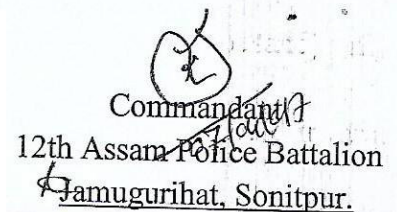 Commandant
12th Assam Police Battalion
Jamugurihat, Sonitpur.